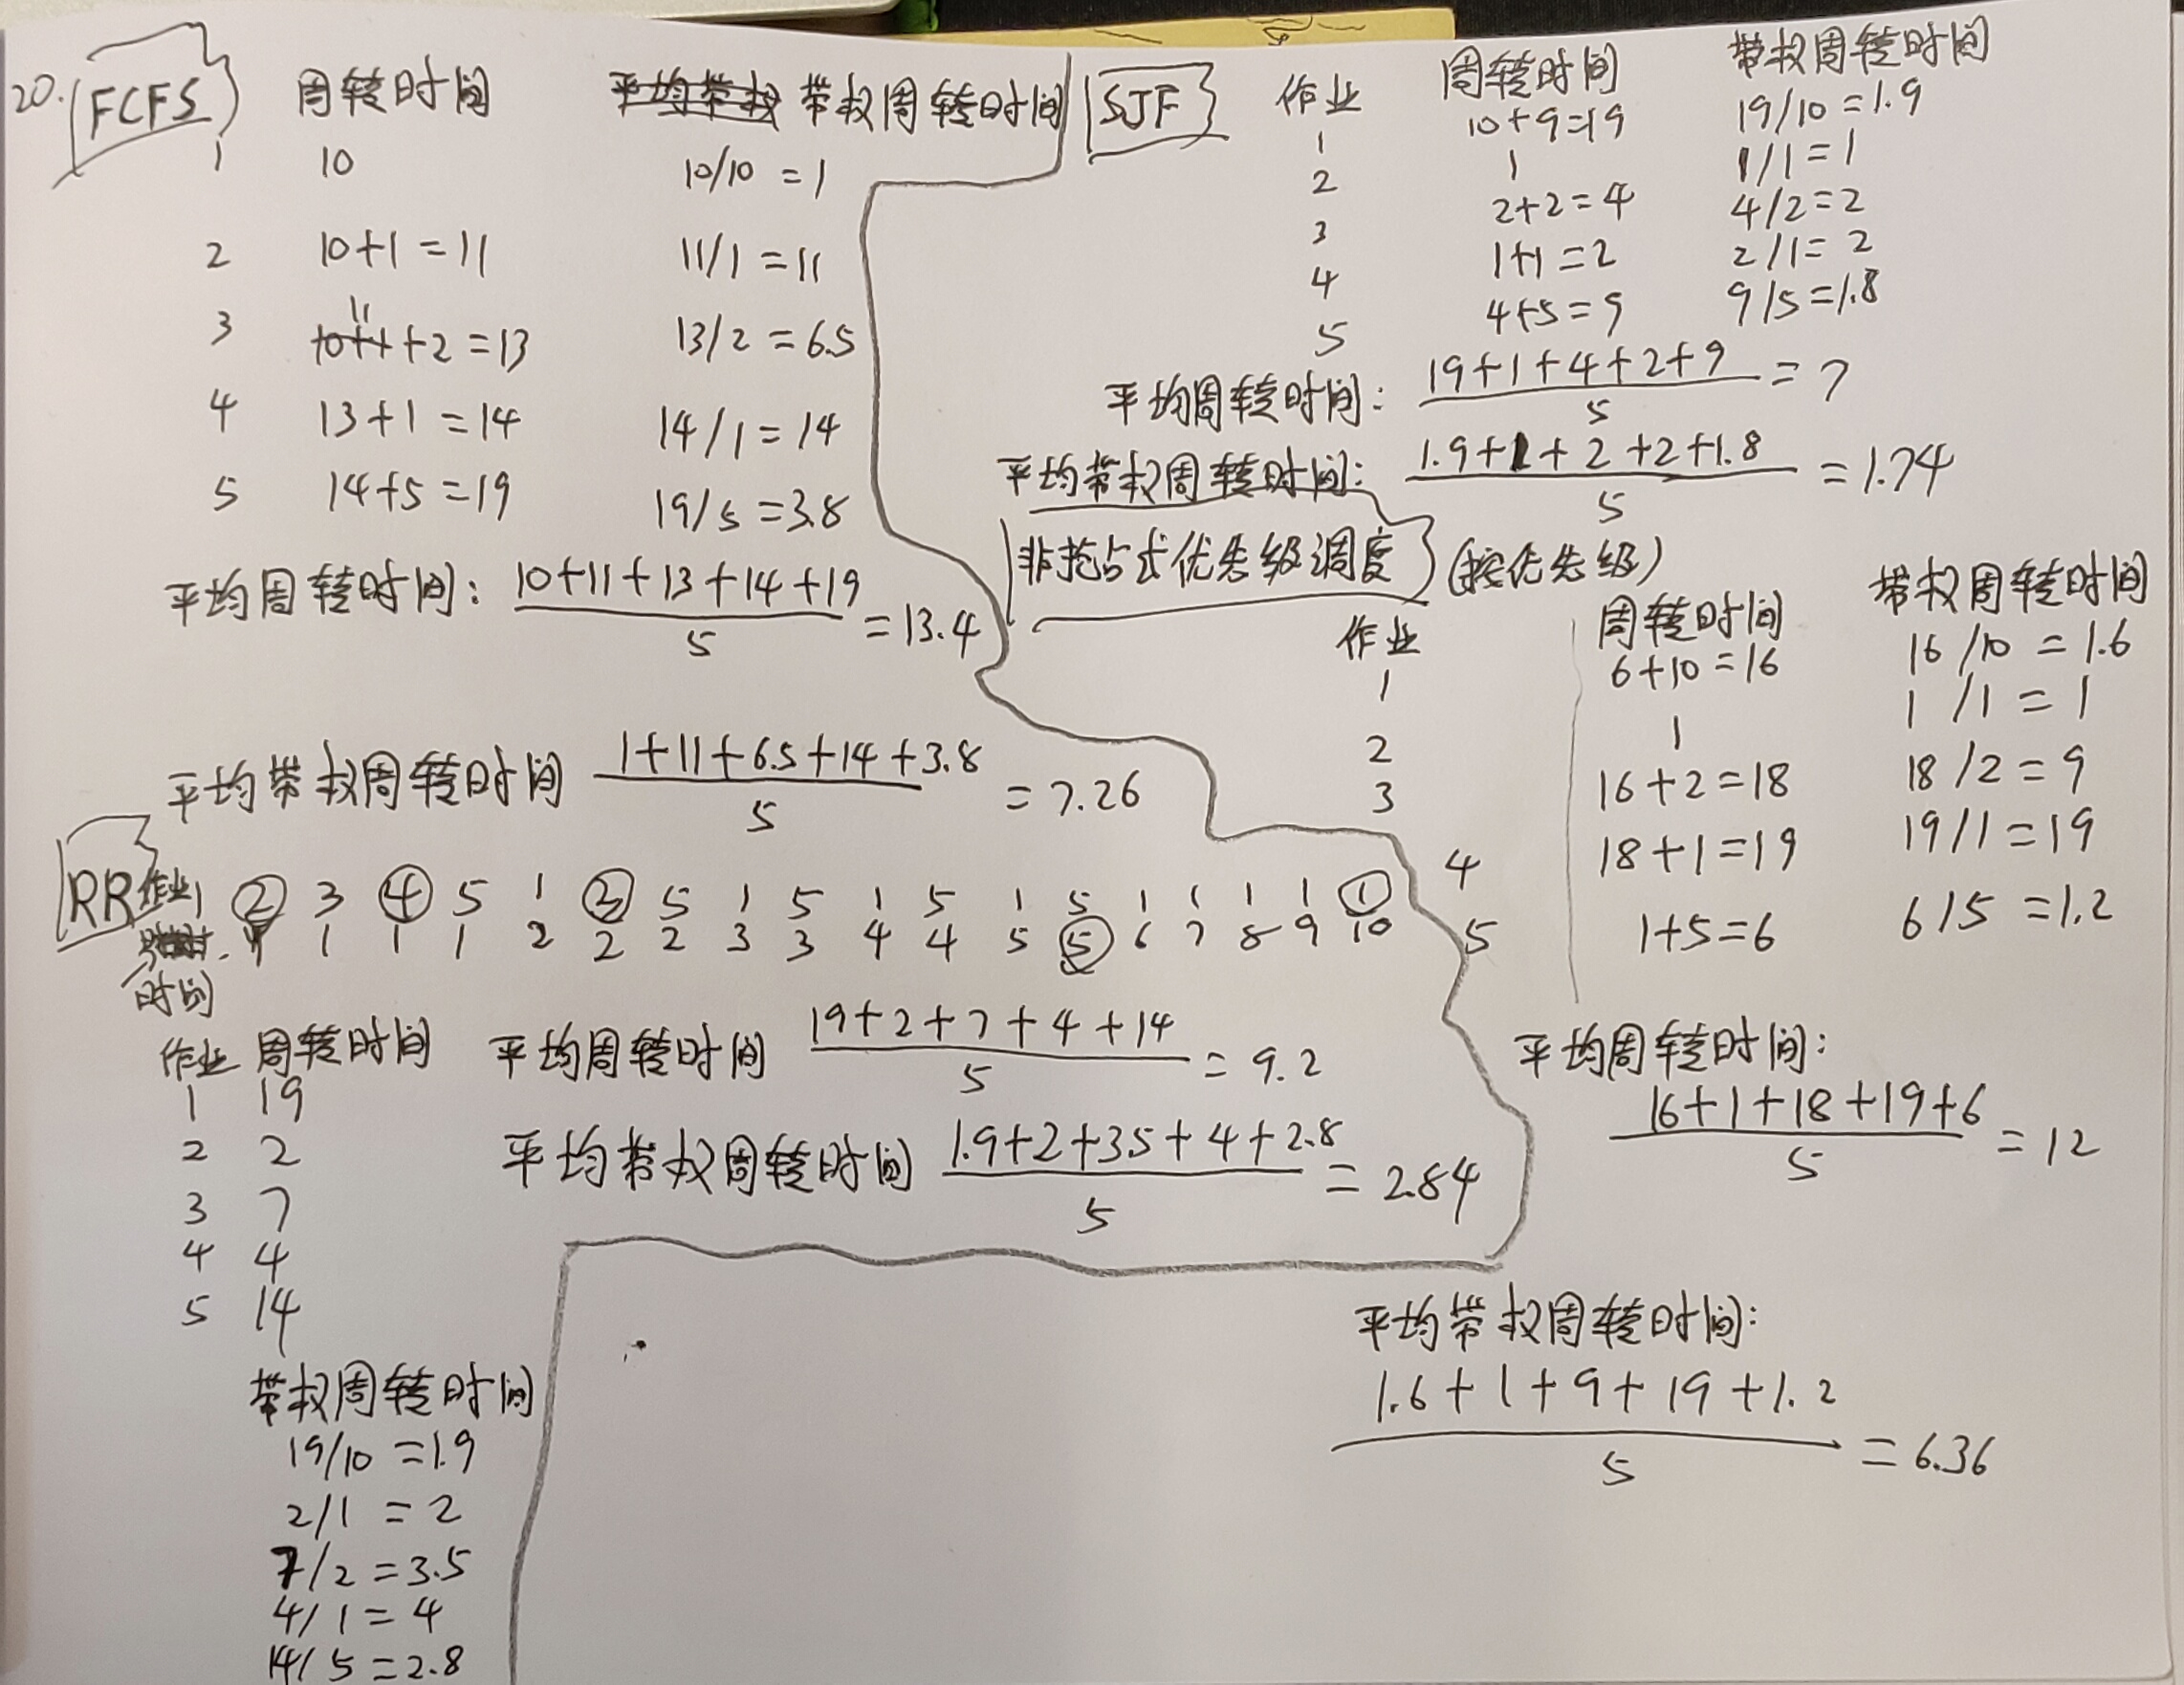 20. FCFS 周转时间 平均带权 带权周转时间
1 10 10/10 = 1
2 10+1 = 11 11/1 = 11
3 10+1 11 +2 = 13 13/2 = 6.5
4 13+1 = 14 14/1 = 14
5 14+5 = 19 19/5 = 3.8
平均周转时间: 10+11+13+14+19 / 5 = 13.4
平均带权周转时间 1+11+6.5+14+3.8 / 5 = 7.26
SJF 作业 周转时间 带权周转时间
1 10+9=19 19/10 = 1.9
2 1 1/1 = 1
3 2+2 = 4 4/2 = 2
4 1+1 = 2 2/1 = 2
5 4+5 = 9 9/5 = 1.8
平均周转时间: 19+1+4+2+9 / 5 = 7
平均带权周转时间: 1.9+1+2+2+1.8 / 5 = 1.74
非抢占式优先级调度 (按优先级)
作业 周转时间 带权周转时间
1 6+10 = 16 16/10 = 1.6
2 1 1/1 = 1
3 16+2 = 18 18/2 = 9
4 18+1 = 19 19/1 = 19
5 1+5 = 6 6/5 = 1.2
平均周转时间:
16+1+18+19+6 / 5 = 12
平均带权周转时间:
1.6+1+9+19+1.2 / 5 = 6.36
RR 作业 1 2 3 4 5 1 3 5 1 5 1 5 1 5 1 1 1 1 1
时间 1 1 1 1 2 2 2 3 3 4 4 5 5 6 7 8 9 10
作业 周转时间
1 19
2 2
3 7
4 4
5 14
平均周转时间 19+2+7+4+14 / 5 = 9.2
平均带权周转时间 1.9+2+3.5+4+2.8 / 5 = 2.84
带权周转时间
19/10 = 1.9
2/1 = 2
7/2 = 3.5
4/1 = 4
14/5 = 2.8